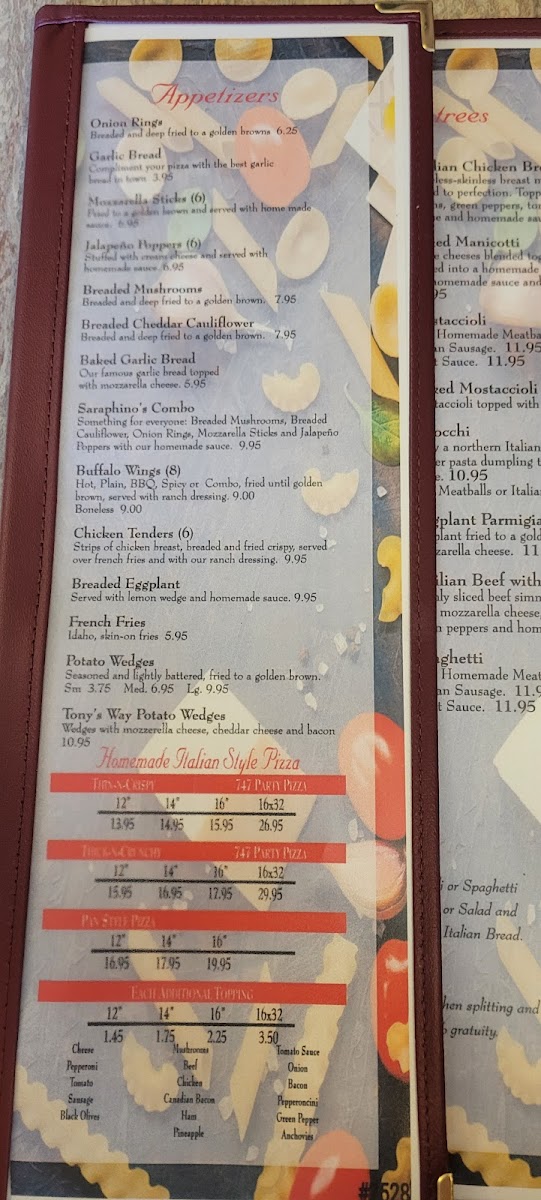 Appetizers
Onion Rings
Breaded and deep fried to a golden browns 6.25
Garlic Bread
Compliment your pizza with the best garlic
bread in town 3.95
Mozzarella Sticks (6)
Fried to a golden brown and served with home made
sauce. 6.95
Jalapeño Poppers (6)
Stuffed with cream cheese and served with
homemade sauce 6.95
Breaded Mushrooms
Breaded and deep fried to a golden brown. 7.95
Breaded Cheddar Cauliflower
Breaded and deep fried to a golden brown. 7.95
Baked Garlic Bread
Our famous garlic bread topped
with mozzarella cheese. 5.95
Saraphino's Combo
Something for everyone: Breaded Mushrooms, Breaded
Cauliflower, Onion Rings, Mozzarella Sticks and Jalapeño
Poppers with our homemade sauce. 9.95
Buffalo Wings (8)
Hot, Plain, BBQ, Spicy or Combo, fried until golden
brown, served with ranch dressing. 9.00
Boneless 9.00
Chicken Tenders (6)
Strips of chicken breast, breaded and fried crispy, served
over french fries and with our ranch dressing. 9.95
Breaded Eggplant
Served with lemon wedge and homemade sauce. 9.95
French Fries
Idaho, skin-on fries 5.95
Potato Wedges
Seasoned and lightly battered, fried to a golden brown.
Sm 3.75 Med. 6.95 Lg. 9.95
Tony's Way Potato Wedges
Wedges with mozzerella cheese, cheddar cheese and bacon
10.95
Homemade Italian Style Pizza
Thin-n-Crispy 747 Party Pizza
12" 14" 16" 16x32
13.95 14.95 15.95 26.95
Thick-n-Crunchy 747 Party Pizza
12" 14" 16" 16x32
15.95 16.95 17.95 29.95
Pan Style Pizza
12" 14" 16"
16.95 17.95 19.95
Each Additional Topping
12" 14" 16" 16x32
1.45 1.75 2.25 3.50
Cheese Mushrooms Tomato Sauce
Pepperoni Beef Onion
Tomato Chicken Bacon
Sausage Canadian Bacon Pepperoncini
Black Olives Ham Green Pepper
Pineapple Anchovies
trees
lian Chicken Br
less-skinless breast m
d to perfection. Topp
ns, green peppers, to
e and homemade sau
ed Manicotti
e cheeses blended to
ed into a homemade
homemade sauce and
95
staccioli
Homemade Meatba
an Sausage. 11.95
t Sauce. 11.95
ked Mostaccioli
taccioli topped with
occhi
y a northern Italian
er pasta dumpling t
e. 10.95
Meatballs or Italia
gplant Parmigia
plant fried to a gold
zarella cheese. 11
ilian Beef with
ly sliced beef simm
mozzarella cheese
n peppers and hom
aghetti
Homemade Meat
an Sausage. 11.9
t Sauce. 11.95
i or Spaghetti
or Salad and
Italian Bread.
hen splitting and
gratuity.